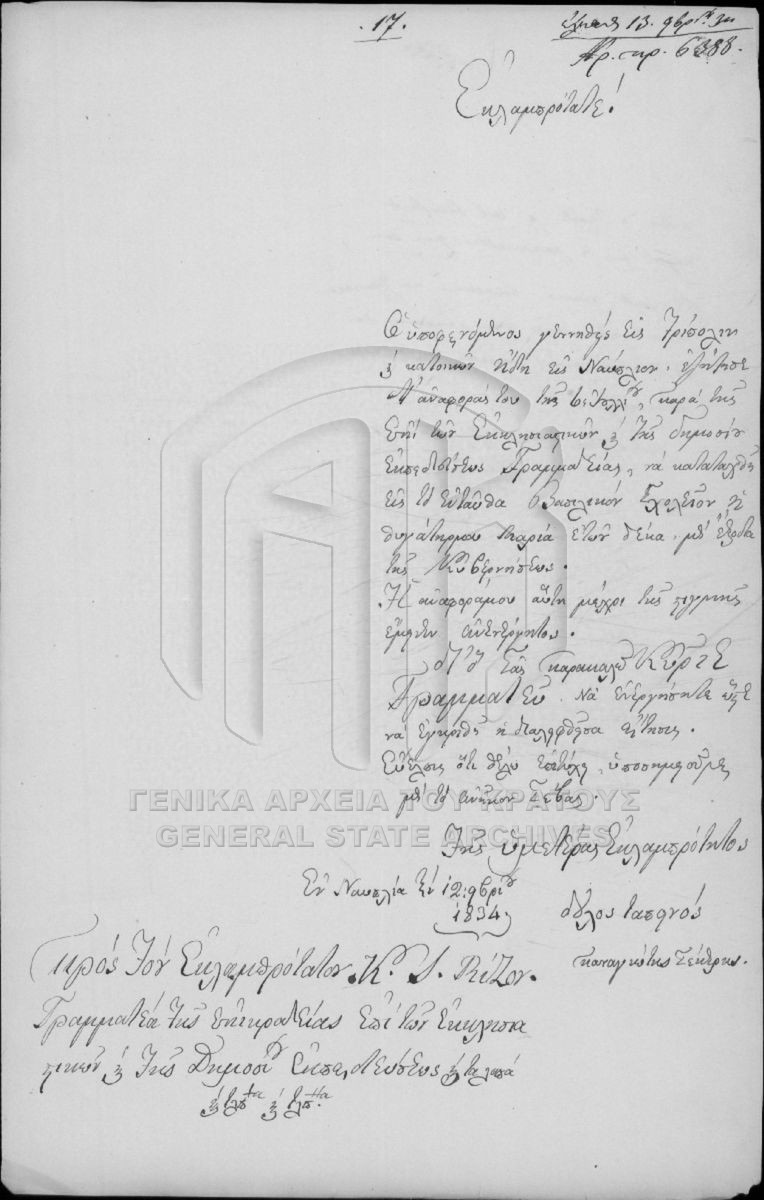 . 17 .
13. 9βρίου 34
Αρ. πρ. 6388.
Ἐκλαμπρότατε!
Ὁ ὑποφαινόμενος γεννηθείς εἰς Τρίπολιν
ϗ κατοικῶν ἤδη εἰς Ναύπλιον, ἐζήτησε
δι' ἀναφορᾶς του τῆς παρά τῆς
ἐπί τῶν Ἐκκλησιαστικῶν ϗ τῆς δημοσίου
ἐκπαιδεύσεως Γραμματείας, νά καταταχθῇ
εἰς τό ἐνταῦθα Βασιλικόν Σχολεῖον ἡ
θυγάτηρμου Μαρία ἐτῶν δέκα, μέ ἔξοδα
τῆς Κυβερνήσεως.
Ἡ ἀναφοράμου αὕτη μέχρι τῆς στιγμῆς
ἔμεινεν ἀνενέργητος.
Δι' ὅ σᾶς παρακαλῶ Κύριε
Γραμματεῦ νά ἐνεργήσητε ὥστε
νά ἐγκριθῇ ἡ διαληφθεῖσα αἴτησις.
Εὔελπις ὅτι θέλω ἐπιτύχῃ, ὑποσημειοῦμαι
μέ τό ἀνῆκον σέβας.
Τῆς ὑμετέρας Ἐκλαμπρότητος
Ἐν Ναυπλίᾳ τήν 12: 9βρίου
1834
δοῦλος ταπεινός
παναγιώτης
Πρός Τόν Ἐκλαμπρότατον Κ. Ι. Ρίζον.
Γραμματέα τῆς ἐπικρατείας ἐπί τῶν Ἐκκλησια
στικῶν ϗ τῆς Δημοσίου Ἐκπαιδεύσεως
ΓΕΝΙΚΑ ΑΡΧΕΙΑ ΤΟΥ ΚΡΑΤΟΥΣ
GENERAL STATE ARCHIVES